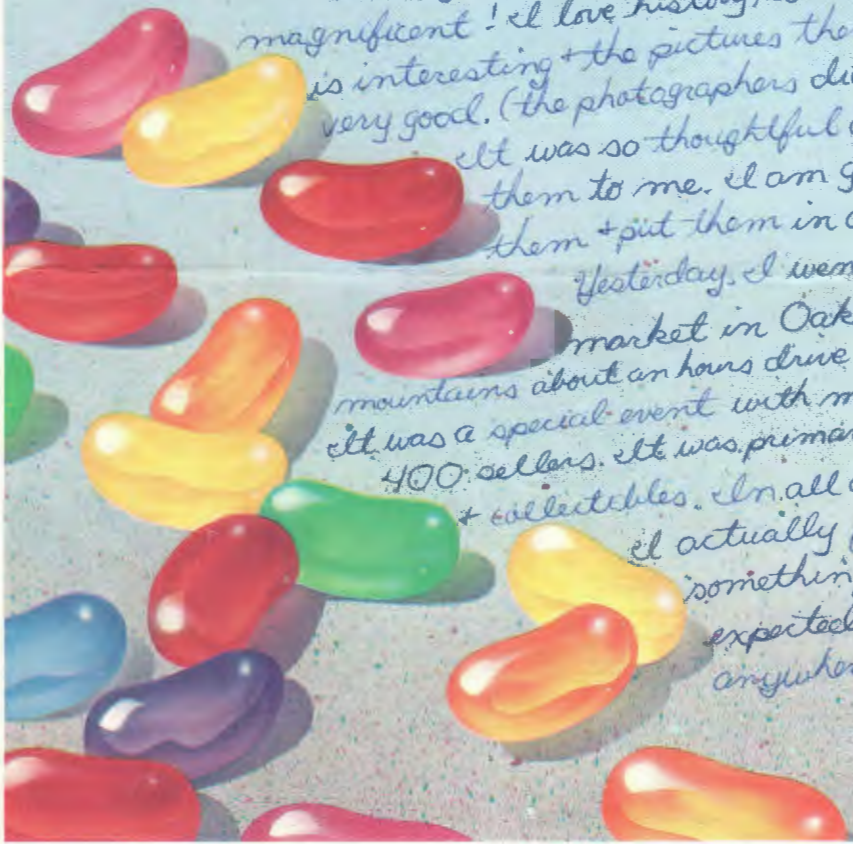 magnificent! I love history,
is interesting + the pictures the
very good. (the photographers di
It was so thoughtful
them to me. I am g
them + put them in a
Yesterday, I wen
market in Oak
mountains about an hours drive
It was a special event with m
400 sellers. It was primar
+ collectibles. In all
I actually
somethin
expected
anywher